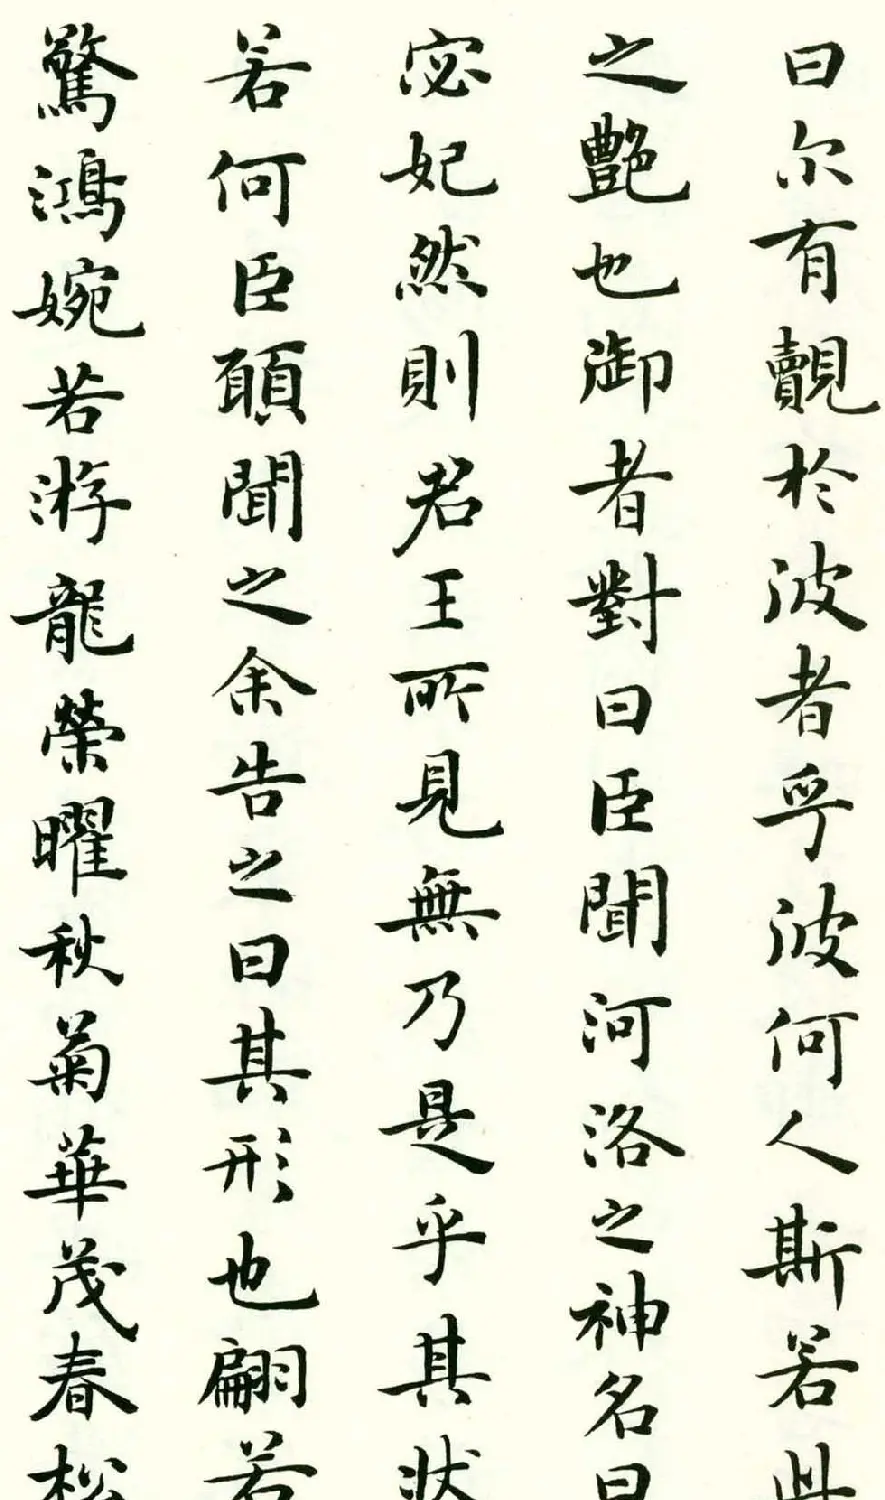 曰尔有覿於波者乎波何人斯若此
之艷也御者對曰臣聞河洛之神名曰
宓妃然則君王所見無乃是乎其狀
若何臣願聞之余告之曰其形也翩若
驚鴻婉若游龍榮曜秋菊華茂春松